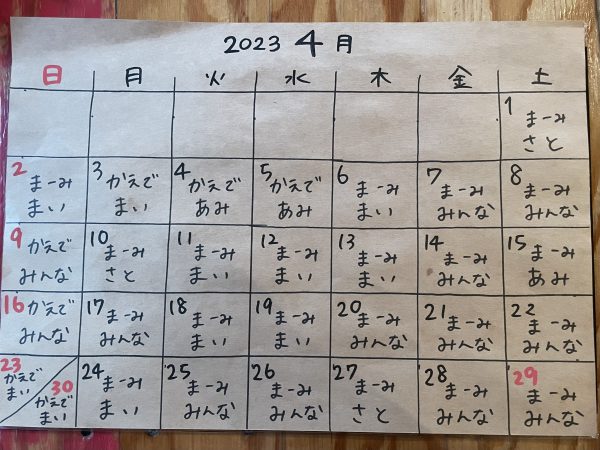 2023 4月
日 月 火 水 木 金 土
1 まーみ
さと
2 まーみ
まい
3 かえで
まい
4 かえで
あみ
5 かえで
あみ
6 まーみ
まい
7 まーみ
みんな
8 まーみ
みんな
9 かえで
みんな
10 まーみ
さと
11 まーみ
まい
12 まーみ
まい
13 まーみ
まい
14 まーみ
みんな
15 まーみ
あみ
16 かえで
みんな
17 まーみ
みんな
18 まーみ
まい
19 まーみ
まい
20 まーみ
みんな
21 まーみ
みんな
22 まーみ
みんな
23
かえで
まい
30
かえで
まい
24 まーみ
まい
25 まーみ
みんな
26 まーみ
みんな
27 まーみ
さと
28 まーみ
みんな
29 まーみ
みんな